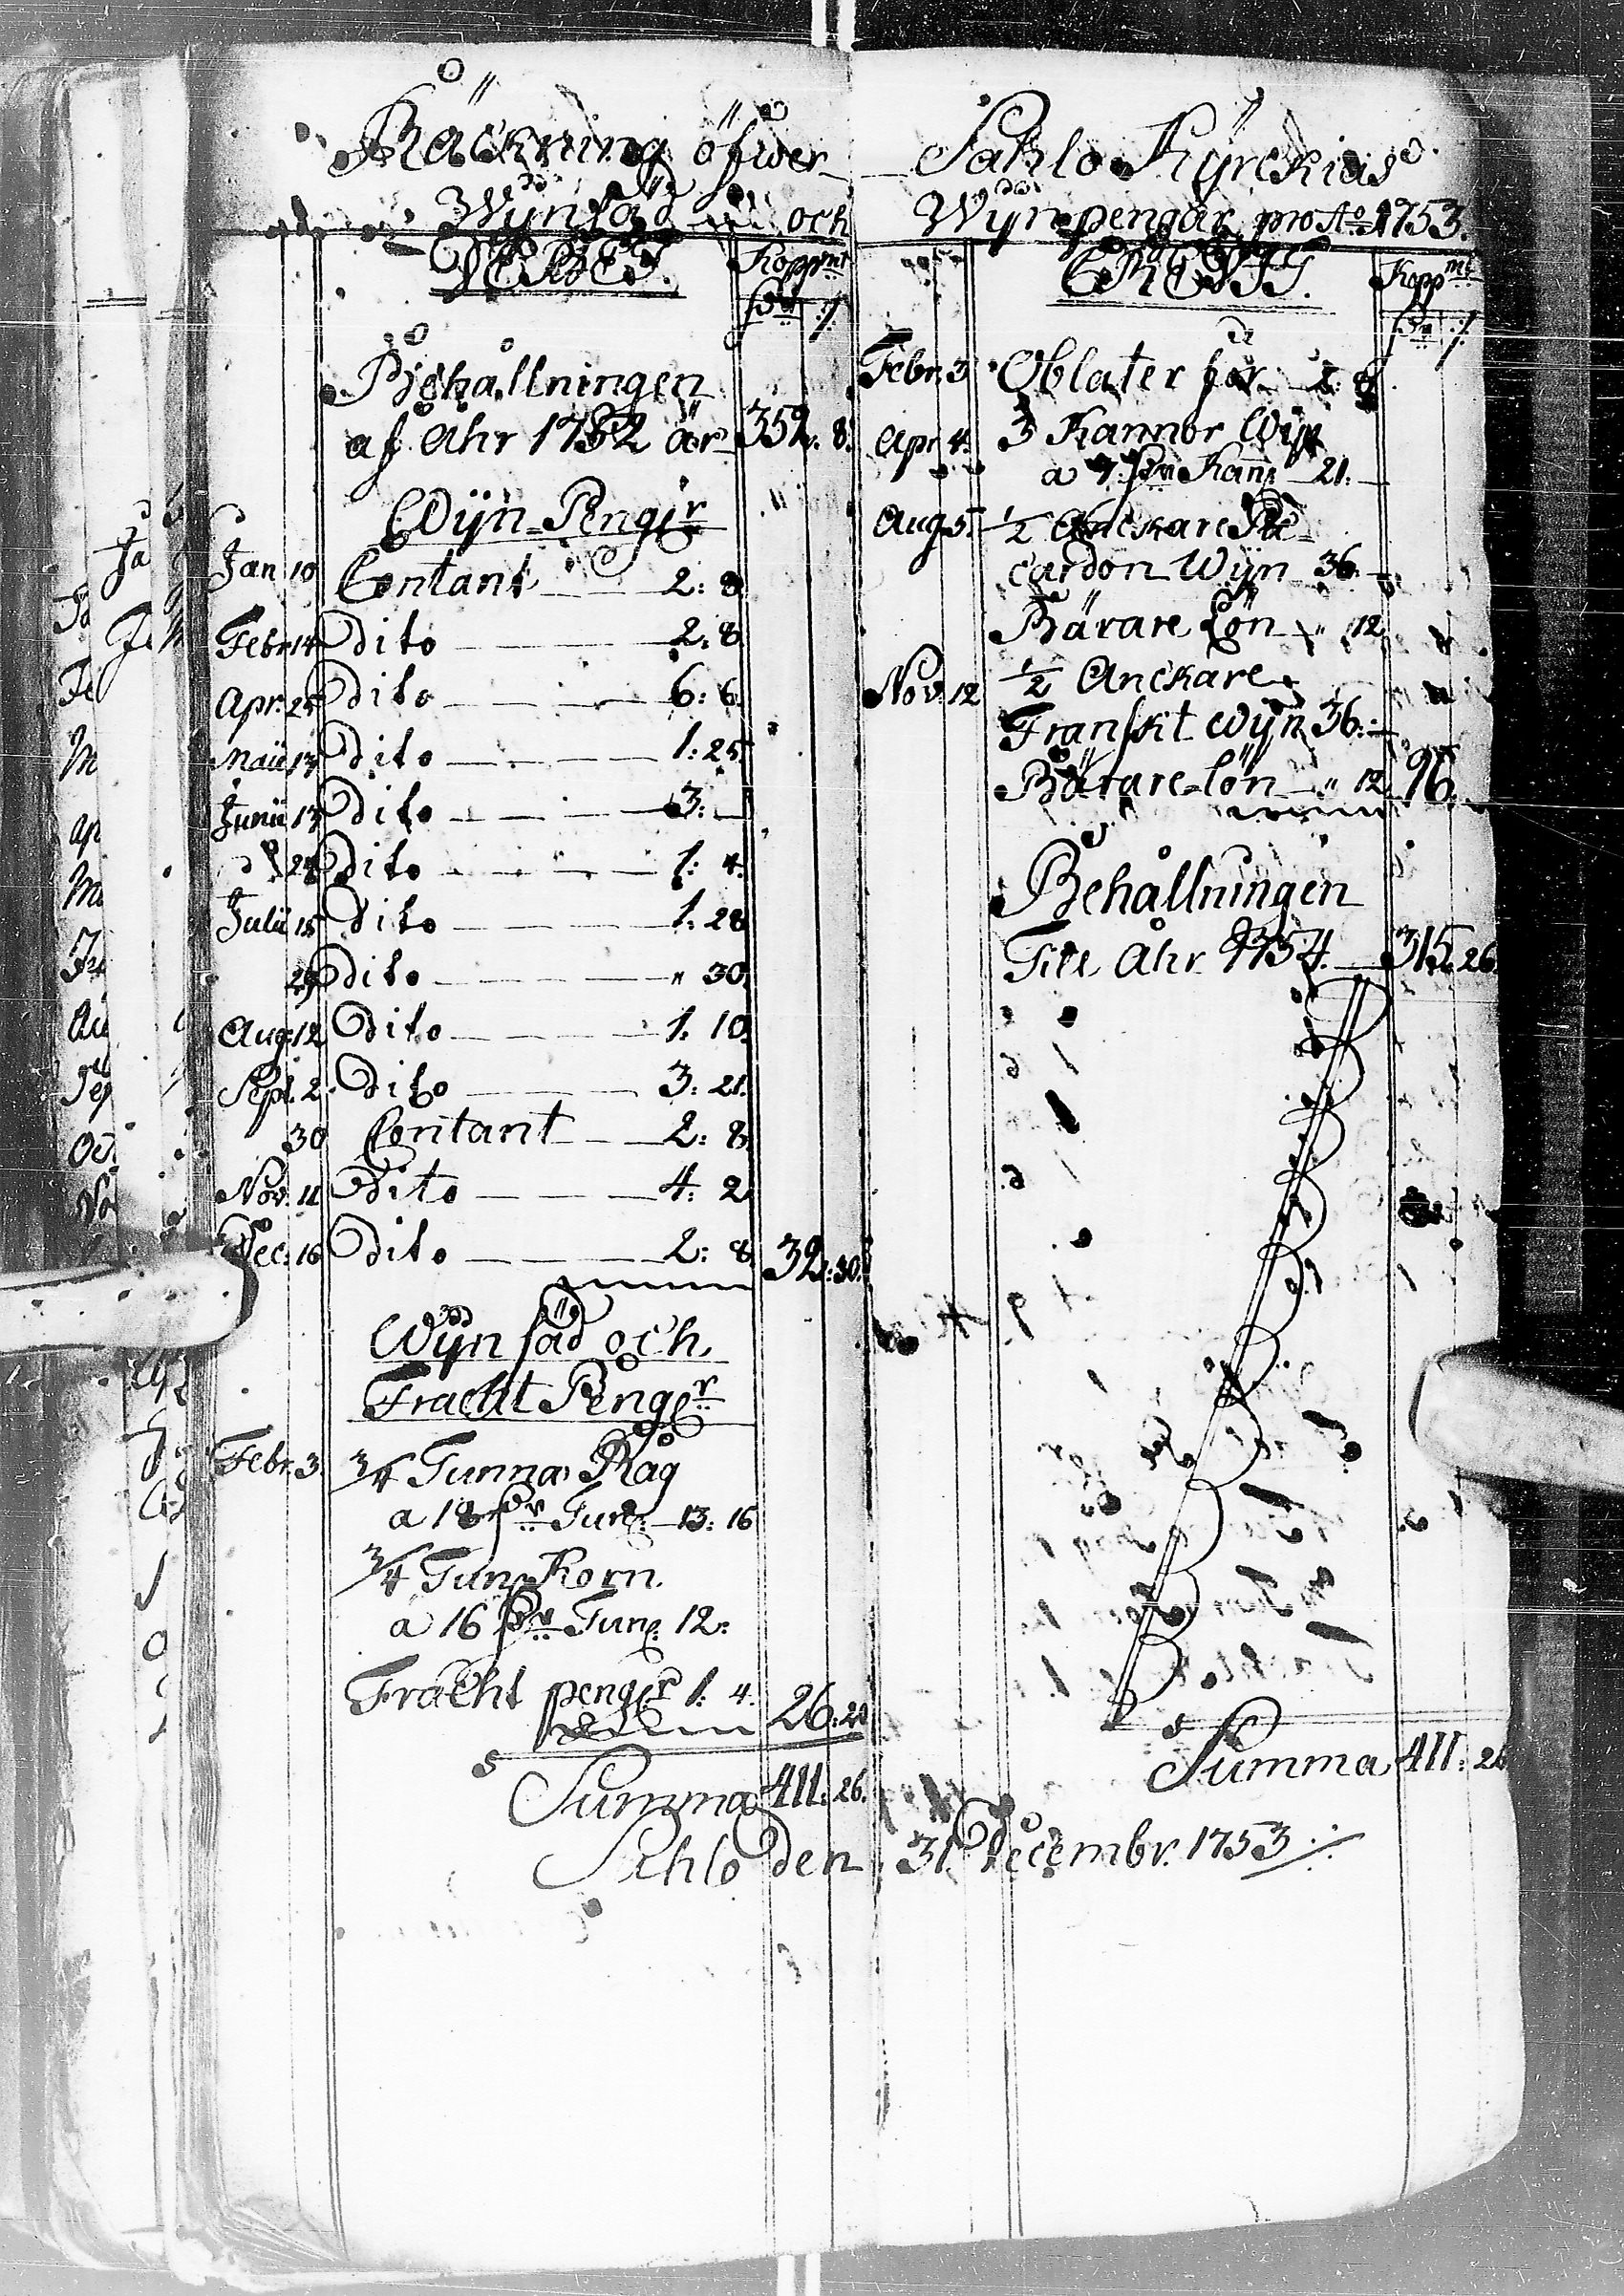 Räckning öfwer
Wÿnsäd och
DEBET. Kopp mt
Behållningen
af Åhr 1752 är 352: 8.
Wÿn Penger
Jan: 10 Contant 2: 8
Febr: 14 Dito 2: 8
Apr: 25 Dito 6: 6
Maii 13 Dito 1: 25
Junii 13 Dito 3: —
24 Dito 1: 4
Julii 15 Dito 1: 28
29 Dito " 30
Aug: 12 Dito 1. 10
Sept. 2 Dito 3: 21
30 Contant 2: 8
Nov: 11 Dito 4: 2
Dec: 16 Dito 2: 8 32: 30.
Wÿn säd och
Fracht Penger
Febr. 3. 3/4 Tunna Råg
a 18 Dr Tun: 13: 16
3/4 Tun Korn
a 16 Dr Tun: 12:
Fracht penger 1: 4. 26: 20
Summa 411: 26.
Sahlo Kÿrckias
Wÿnpengar pro Ao 1753.
CREDIT. Kopp mt
Febr. 3 Oblater för
Apr 4. 3 Kannor Wÿn
a 7 Dr Kan: 21: —
Aug 5. 1/2 Anckare Pi
cardon Wÿn 36: —
Bärare Lön " 12
Nov: 12 1/2 Anckare
Franskt Wÿn 36: —
Bärare-lön " 12 96.
Behållningen
Till Åhr 1754 315: 26.
Summa 411: 26
Sahlo den 31 Decembr. 1753